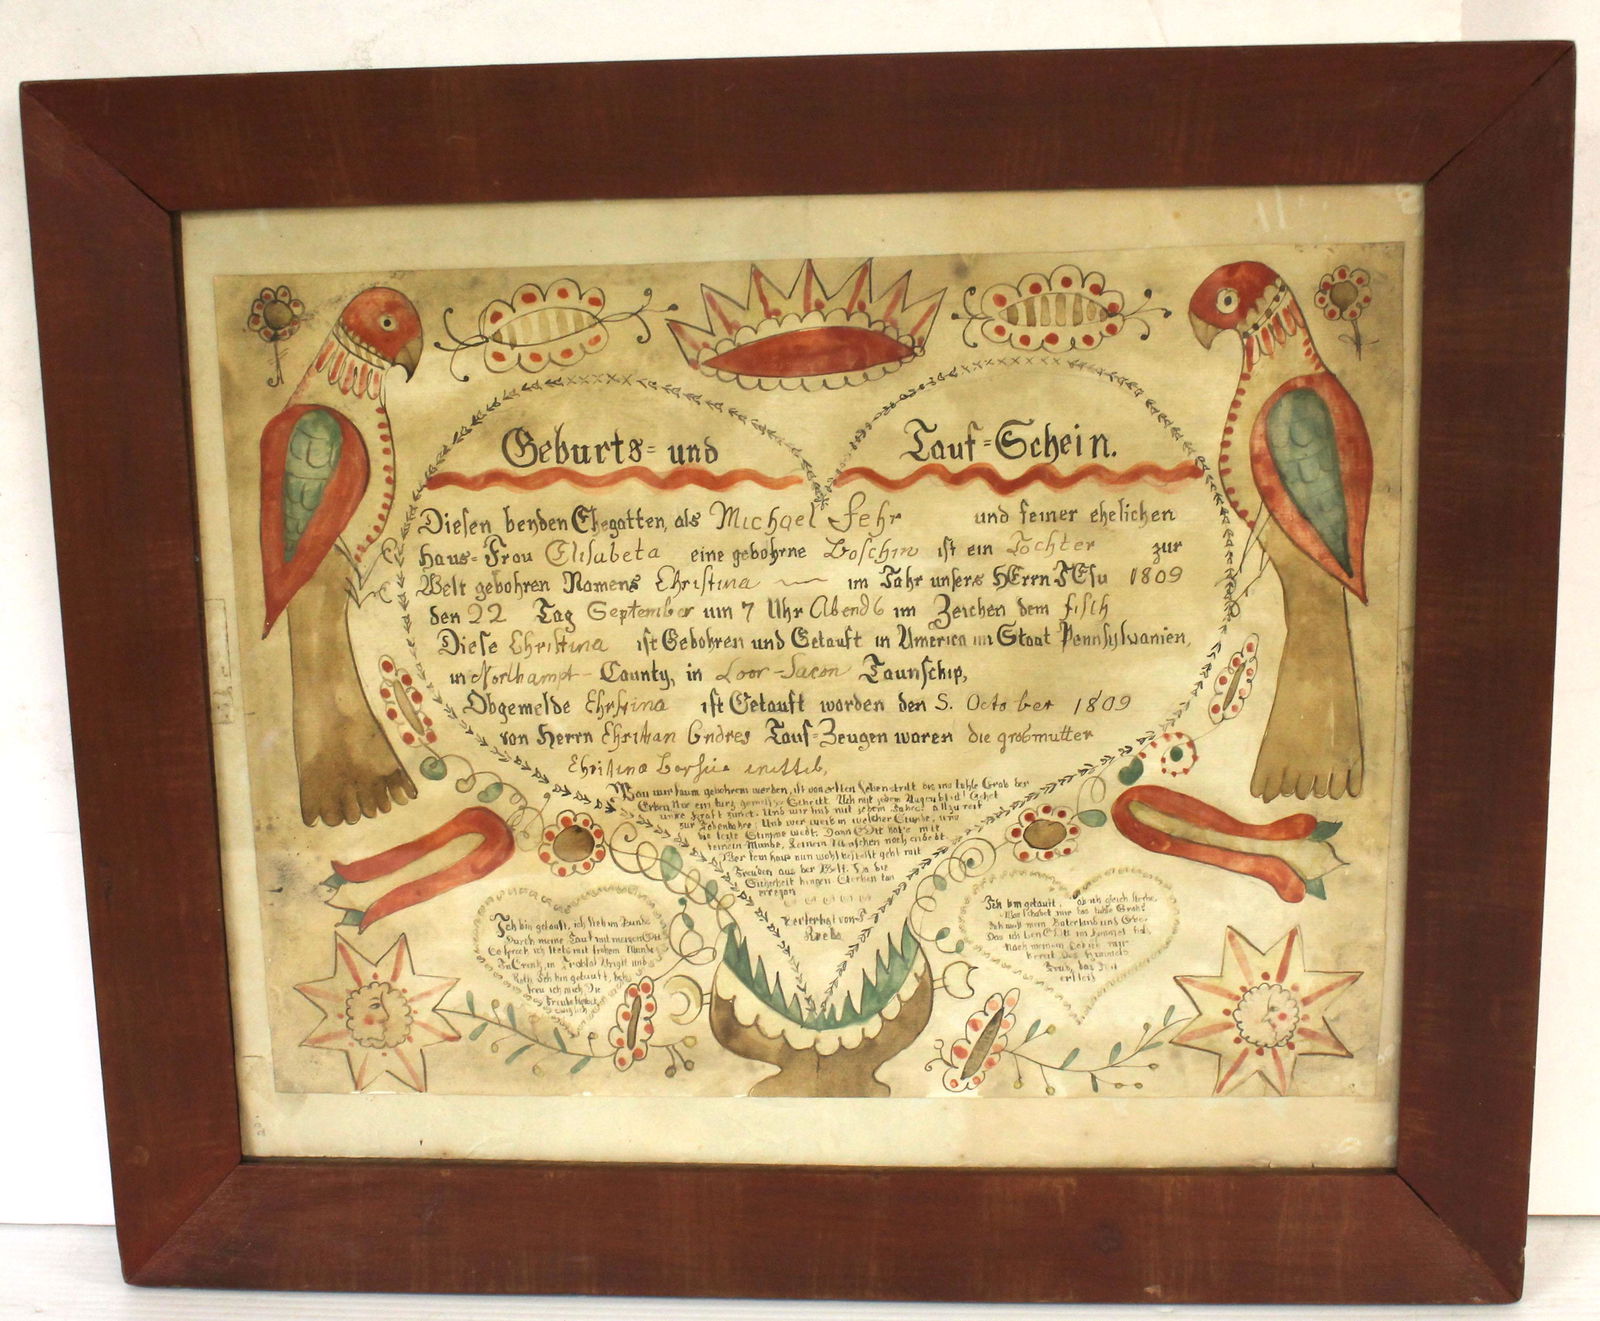 Geburts= und Tauf=Schein.
Diesen beyden Ehegatten, als Michael Fehr und seiner ehelichen
Haus=Frau Elisabeta eine gebohrne Loschin ist ein Tochter zur
Welt gebohren Namens Christina im Jahr unsers HErrn JEsu 1809
den 22 Tag September um 7 Uhr Abends im Zeichen dem fisch
Diese Christina ist Gebohren und Getauft in America im Staat Pennsylvanien,
in Northampt- County, in Loor-Sacon Taunschip,
Obgemelde Christina ist Getauft worden den 8. October 1809
von Herrn Christian Endres Tauf=Zeugen waren die grosmutter
Christina
Wan wir kaum gebohren werden, ist vom ersten Lebenstritt bis ins kühle Grab der
Erden Nur ein kurz gemessner Schritt. Ach mit jedem Augenblick! Gehet
unsre Kraft zurück, Und wir sind mit jedem Jahre, allzu reif
zur Todenbahre, Und wer weis in welcher Stunde, uns
die lezte Stimme wekt, Dann GOtt hat's mit
seinem Munde, keinem Menschen noch endekt.
Wer sein haus nun wohl bestellt geht mit
Freuden aus der Welt. Da die
Sicherheit hingen Sterben kan
erregen
Ich bin getauft, ich steh im Bunde
Durch meine Tauf mit meinem GOtt
So sprech ich stets mit frohem Munde
In Creutz, in Trübsal Angst und
Noth Ich bin getauft, des
freu ich mich Die
Freude bleibet
ewiglich
Ich bin getauft, ob ich gleich sterbe
Was schadet mir das kühle Grab?
Ich weis mein Vaterland und Erbe
Das ich bey GOtt im himmel hab,
Nach meinem Tod ist mir
bereit Des himmels
Freud, das